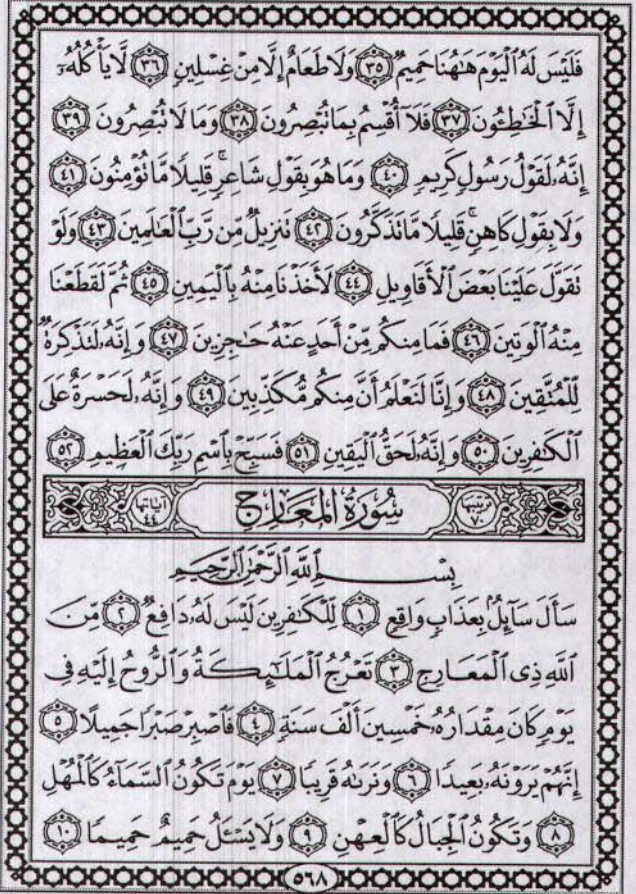 فَلَيْسَ لَهُ ٱلْيَوْمَ هَٰهُنَا حَمِيمٌ ٣٥ وَلَا طَعَامٌ إِلَّا مِنْ غِسْلِينٍ ٣٦ لَّا يَأْكُلُهُۥٓ
إِلَّا ٱلْخَٰطِـُٔونَ ٣٧ فَلَآ أُقْسِمُ بِمَا تُبْصِرُونَ ٣٨ وَمَا لَا تُبْصِرُونَ ٣٩
إِنَّهُۥ لَقَوْلُ رَسُولٍ كَرِيمٍ ٤٠ وَمَا هُوَ بِقَوْلِ شَاعِرٍ ۚ قَلِيلًا مَّا تُؤْمِنُونَ ٤١
وَلَا بِقَوْلِ كَاهِنٍ ۚ قَلِيلًا مَّا تَذَكَّرُونَ ٤٢ تَنزِيلٌ مِّن رَّبِّ ٱلْعَٰلَمِينَ ٤٣ وَلَوْ
تَقَوَّلَ عَلَيْنَا بَعْضَ ٱلْأَقَاوِيلِ ٤٤ لَأَخَذْنَا مِنْهُ بِٱلْيَمِينِ ٤٥ ثُمَّ لَقَطَعْنَا
مِنْهُ ٱلْوَتِينَ ٤٦ فَمَا مِنكُم مِّنْ أَحَدٍ عَنْهُ حَٰجِزِينَ ٤٧ وَإِنَّهُۥ لَتَذْكِرَةٌ
لِّلْمُتَّقِينَ ٤٨ وَإِنَّا لَنَعْلَمُ أَنَّ مِنكُم مُّكَذِّبِينَ ٤٩ وَإِنَّهُۥ لَحَسْرَةٌ عَلَى
ٱلْكَٰفِرِينَ ٥٠ وَإِنَّهُۥ لَحَقُّ ٱلْيَقِينِ ٥١ فَسَبِّحْ بِٱسْمِ رَبِّكَ ٱلْعَظِيمِ ٥٢
ترتيبها ٧٠ سُورَةُ المَعَارِجِ آياتها ٤٤
بِسْمِ ٱللَّهِ ٱلرَّحْمَٰنِ ٱلرَّحِيمِ
سَأَلَ سَآئِلٌۢ بِعَذَابٍ وَاقِعٍ ١ لِّلْكَٰفِرِينَ لَيْسَ لَهُۥ دَافِعٌ ٢ مِّنَ
ٱللَّهِ ذِى ٱلْمَعَارِجِ ٣ تَعْرُجُ ٱلْمَلَٰٓئِكَةُ وَٱلرُّوحُ إِلَيْهِ فِى
يَوْمٍ كَانَ مِقْدَارُهُۥ خَمْسِينَ أَلْفَ سَنَةٍ ٤ فَٱصْبِرْ صَبْرًا جَمِيلًا ٥
إِنَّهُمْ يَرَوْنَهُۥ بَعِيدًا ٦ وَنَرَىٰهُ قَرِيبًا ٧ يَوْمَ تَكُونُ ٱلسَّمَآءُ كَٱلْمُهْلِ
٨ وَتَكُونُ ٱلْجِبَالُ كَٱلْعِهْنِ ٩ وَلَا يَسْـَٔلُ حَمِيمٌ حَمِيمًا ١٠
٥٦٨